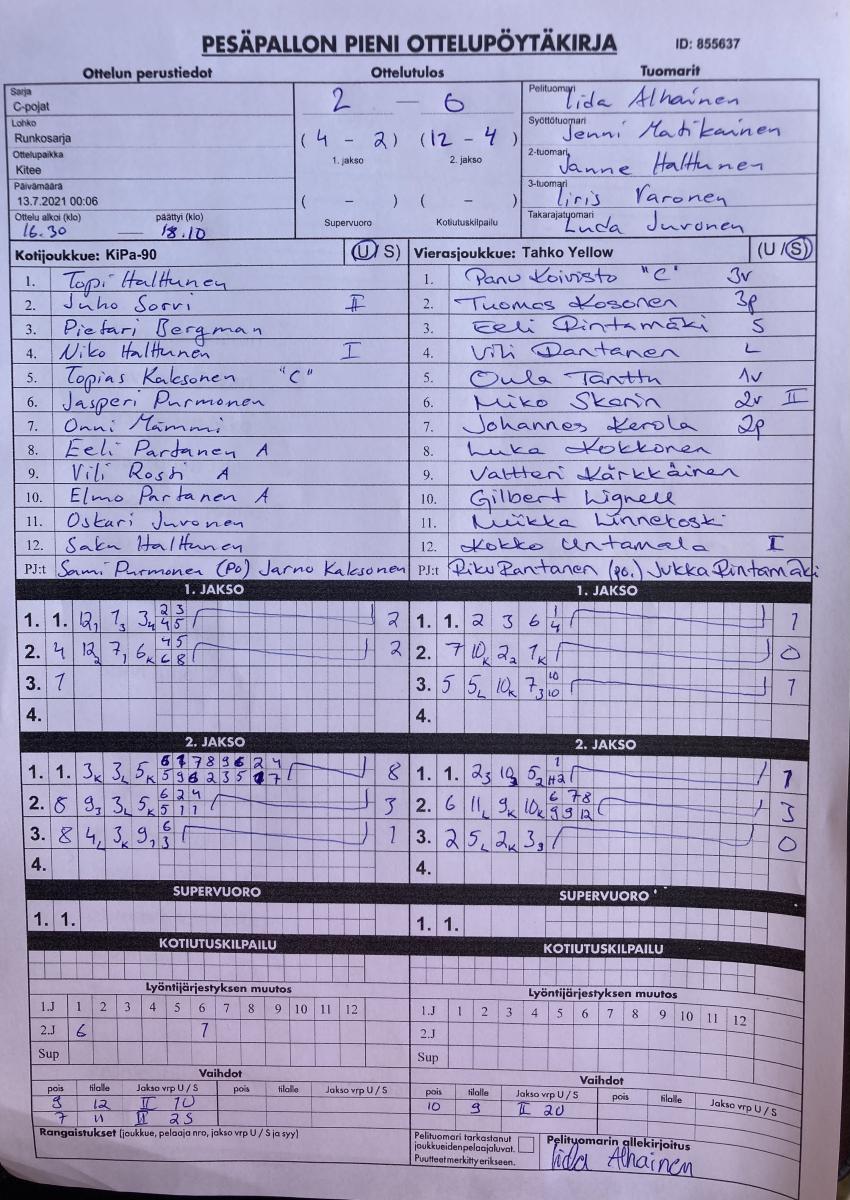 PESÄPALLON PIENI OTTELUPÖYTÄKIRJA ID: 855637
Ottelun perustiedot Ottelutulos Tuomarit
Sarja
C-pojat
Lohko
Runkosarja
Ottelupaikka
Kitee
Päivämäärä
13.7.2021 00:06
Ottelu alkoi (klo) päättyi (klo)
16.30 — 18.10
2 — 6
(4 - 2) (12 - 4)
1. jakso 2. jakso
( - ) ( - )
Supervuoro Kotiutuskilpailu
Pelituomari Iida Alhainen
Syöttötuomari Jenni Matikainen
2-tuomari Janne Halttunen
3-tuomari Iiris Varonen
Takarajatuomari Luda Juvonen
Kotijoukkue: KiPa-90 (U/S)
1. Topi Halttunen
2. Juho Sorvi II
3. Pietari Bergman
4. Niko Halttunen I
5. Topias Kaksonen "C"
6. Jasperi Purmonen
7. Onni Mämmi
8. Eeli Partanen A
9. Vili Rossi A
10. Elmo Partanen A
11. Oskari Juvonen
12. Saku Halttunen
PJ:t Sami Purmonen (PO) Jarno Kaksonen
Vierasjoukkue: Tahko Yellow (U/S)
1. Panu Koivisto "C" 3v
2. Tuomas Kosonen 3p
3. Eeli Rintamäki S
4. Vili Rantanen L
5. Oula Tanttu 1v
6. Miko Skarin 2v II
7. Johannes Kerola 2p
8. Luka Kokkonen
9. Valtteri Kärkkäinen
10. Gilbert Lignell
11. Miikka Linnekoski
12. Kokko Untamala I
PJ:t Riku Rantanen (po.) Jukka Rintamäki
1. JAKSO
1. 1. 12₁ 7₃ 3₄ 2 3 2
4 5
2. 4 12₂ 7₁ 6ₖ 4 5 2
6 8
3. 1
4.
1. JAKSO
1. 1. 2 3 6 1 1
4
2. 7 10ₖ 2₂ 1ₖ 0
3. 5 5L 10ₖ 7₃ 10 1
10
4.
2. JAKSO
1. 1. 3ₖ 3L 5ₖ 6 1 7 8 9 6 2 4 8
5 9 6 2 3 5 1 7
2. 8 9₃ 3L 5ₖ 6 2 4 3
5 1 1
3. 8 4L 3ₖ 9₁ 6 1
3
4.
2. JAKSO
1. 1. 2₃ 10₃ 5₂ 1 1
2. 6 11L 9ₖ 10ₖ 6 7 8 3
9 9 12
3. 2 5L 2ₖ 3₉ 0
4.
SUPERVUORO
1. 1.
SUPERVUORO
1. 1.
KOTIUTUSKILPAILU
KOTIUTUSKILPAILU
Lyöntijärjestyksen muutos
1.J 1 2 3 4 5 6 7 8 9 10 11 12
2.J 6 7
Sup
Lyöntijärjestyksen muutos
1.J 1 2 3 4 5 6 7 8 9 10 11 12
2.J
Sup
Vaihdot
pois tilalle Jakso vrp U / S pois tilalle Jakso vrp U / S
9 12 II 1U
7 11 II 2S
Vaihdot
pois tilalle Jakso vrp U / S pois tilalle Jakso vrp U / S
10 9 II 2U
Rangaistukset (joukkue, pelaaja nro, jakso vrp U / S ja syy)
Pelituomari tarkastanut
joukkueidenpelaajaluvat.
Puutteet merkitty erikseen.
Pelituomarin allekirjoitus
Iida Alhainen